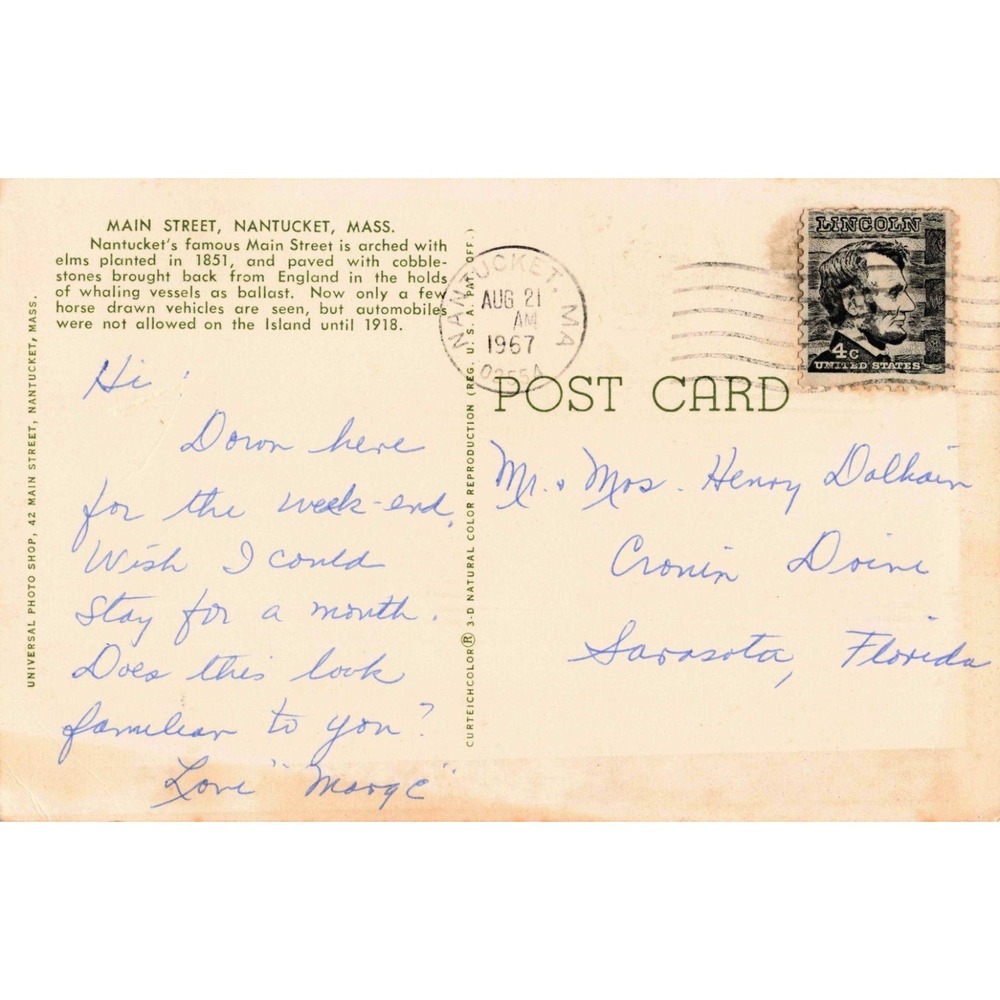 MAIN STREET, NANTUCKET, MASS.
Nantucket's famous Main Street is arched with
elms planted in 1851, and paved with cobble-
stones brought back from England in the holds
of whaling vessels as ballast. Now only a few
horse drawn vehicles are seen, but automobiles
were not allowed on the Island until 1918.
UNIVERSAL PHOTO SHOP, 42 MAIN STREET, NANTUCKET, MASS.
Hi :
Down here
for the week-end.
Wish I could
stay for a month.
Does this look
familiar to you?
Love "Marge"
CURTEICHCOLOR® 3-D NATURAL COLOR REPRODUCTION (REG. U. S. A. PAT. OFF.)
NANTUCKET, MA
AUG 21
AM
1967
LINCOLN
4c
UNITED STATES
POST CARD
Mr. & Mrs. Henry
Cronin Drive
Sarasota, Florida